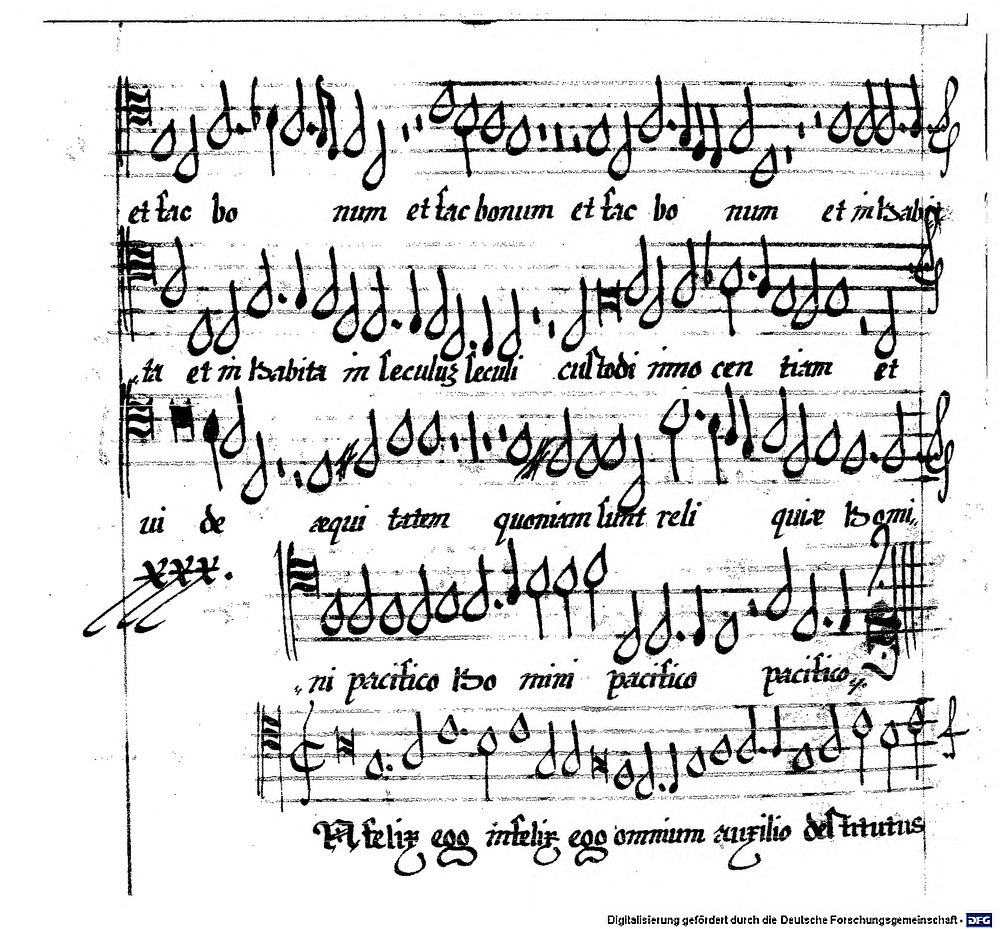 et fac bo num et fac bonum et fac bo num et in habit
ta et in habita in seculuz seculi custodi inno cen tiam et
ui de æqui tatem quoniam sunt reli quiæ homi,,
xxx.
,,ni pacifico ho mini pacifico pacifico,,
Nfelix ego infelix ego omnium auxilio destitutus
Digitalisierung gefördert durch die Deutsche Forschungsgemeinschaft - DFG